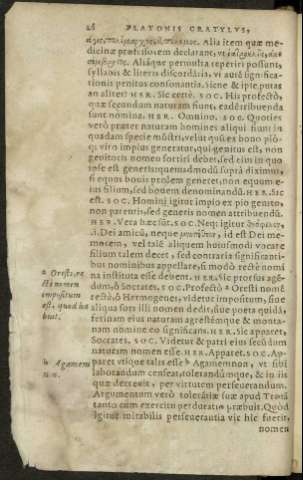 26 PLATONIS CRATYLVS,
Alia item quæ me-
dicinæ præfectos declarant,
Aliáque permulta reperiri possunt,
syllabis & literis discordātia, vi autē significa-
tionis penitus consonantia. siene & ipse putas
an aliter? HER. Sic certè. SOC. His profectò,
quæ secundam naturam fiunt, eadē tribuenda
sunt nomina. HER. Omnino. SOC. Quoties
verò præter naturam homines aliqui fiunt in
quadam specie mōstri, velut quū ex bono pio-
q; viro impius generatur, qui genitus est, non
genitoris nomen sortiri debet, sed eius in quo
ipse est generis: quemadmodū suprà diximus,
si equus bouis prolem generet, non equum e-
ius filium, sed bouem denominandū. HER. Sic
est. SOC. Homini igitur impio ex pio genito,
non parentis, sed generis nomen attribuendū.
HER. Vera hæc sūt. SOC. Neq; igitur
.i. Dei amicū, neque id est Dei me-
morem, vel talē aliquem huiusmodi vocare
filium talem decet, sed contraria significanti-
bus nominibus appellare, si modò rectè nomi
na instituta esse debent. HER. Sic prorsus agē-
dum, ô Socrates. SOC. Profectò ᵃ Oresti nomē
rectè, ô Hermogenes, videtur impositum, siue
aliqua sors illi nomen dedit, siue poeta quidā,
ferinam eius naturam agrestémque & monta-
nam nomine eo significans. HER. Sic apparet,
Socrates. SOC. Videtur & patri eius secūdum
naturam nomen esse. HER. Apparet. SOC. Ap-
paret vtique talis esse ᵇ Agamemnon, vt sibi
laborandum censeat, tolerandúmque, & in iis
quæ decreuit, per virtutem perseuerandum.
Argumentum verò tolerātiæ suæ apud Troiā
tanto cum exercitu perduratio præbuit. Quòd
igitur mirabilis perseuerantia vir hic fuerit,
nomen
ᵃ Oresti, re
ctè nomen
impositum
est, quod ha
buit.
ᵇ Agamem
non.